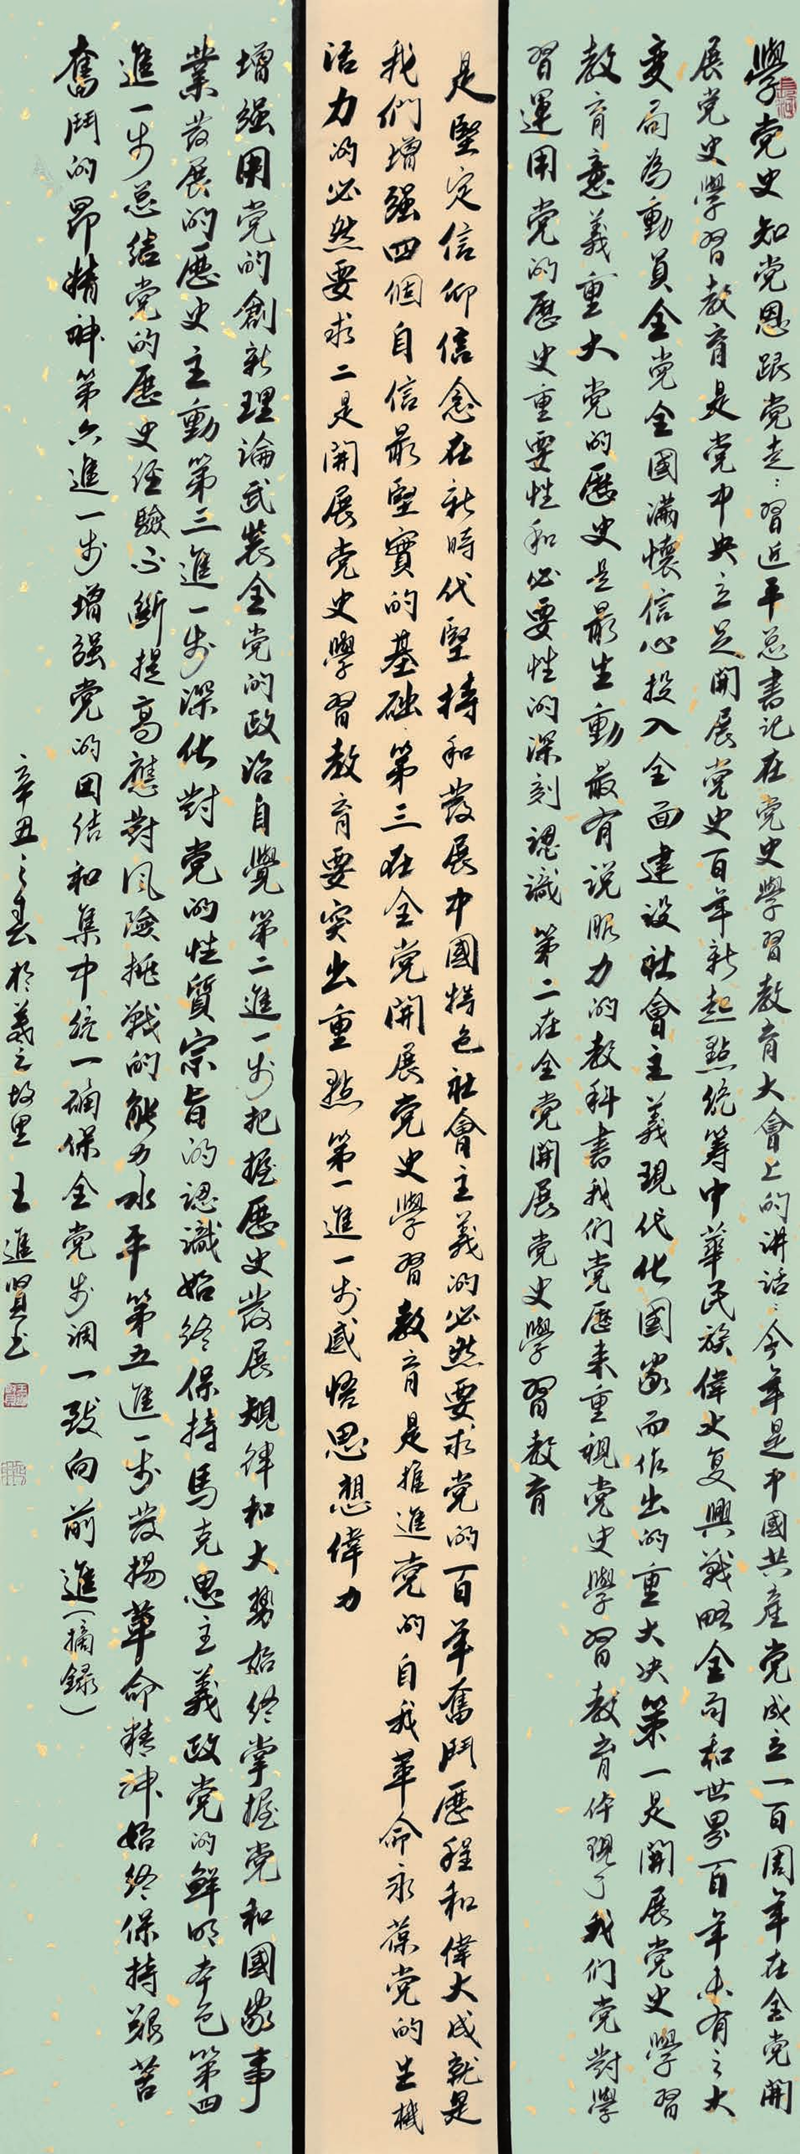 學党史知党恩跟党走：習近平总書记在党史學習教育大會上的讲話：今年是中國共產党成立一百周年在全党開
展党史學習教育是党中央立足開展党史百年新起點统筹中華民族偉大复興戰略全局和世界百年未有之大
变局為動員全党全國滿懷信心投入全面建设社會主義現代化國家而作出的重大决策一是開展党史學習
教育意義重大党的歷史是最生動最有说服力的教科書我们党歷来重視党史學習教育体現了我们党對學
習運用党的歷史重要性和必要性的深刻認識第二在全党開展党史學習教育
是堅定信仰信念在新時代堅持和發展中國特色社會主義的必然要求党的百年奮鬥歷程和偉大成就是
我們增强四個自信最堅實的基础第三在全党開展党史學習教育是推進党的自我革命永葆党的生機
活力的必然要求二是開展党史學習教育要突出重點第一進一步感悟思想偉力
增强用党的創新理論武装全党的政治自覺第二進一步把握歷史發展規律和大勢始终掌握党和國家事
業發展的歷史主動第三進一步深化對党的性質宗旨的認識始终保持馬克思主義政党的鮮明本色第四
進一步总结党的歷史经驗不斷提高應對风險挑戰的能力水平第五進一步發揚革命精神始终保持艱苦
奮鬥的昂精神第六進一步增强党的团结和集中统一确保全党步调一致向前進（摘錄）
辛丑之春於羲之故里王進賢书